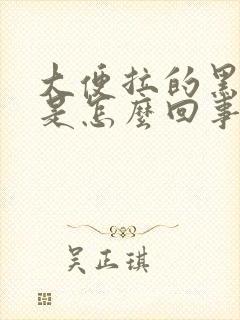 大便拉的黑
是怎麼回事
吴正琪